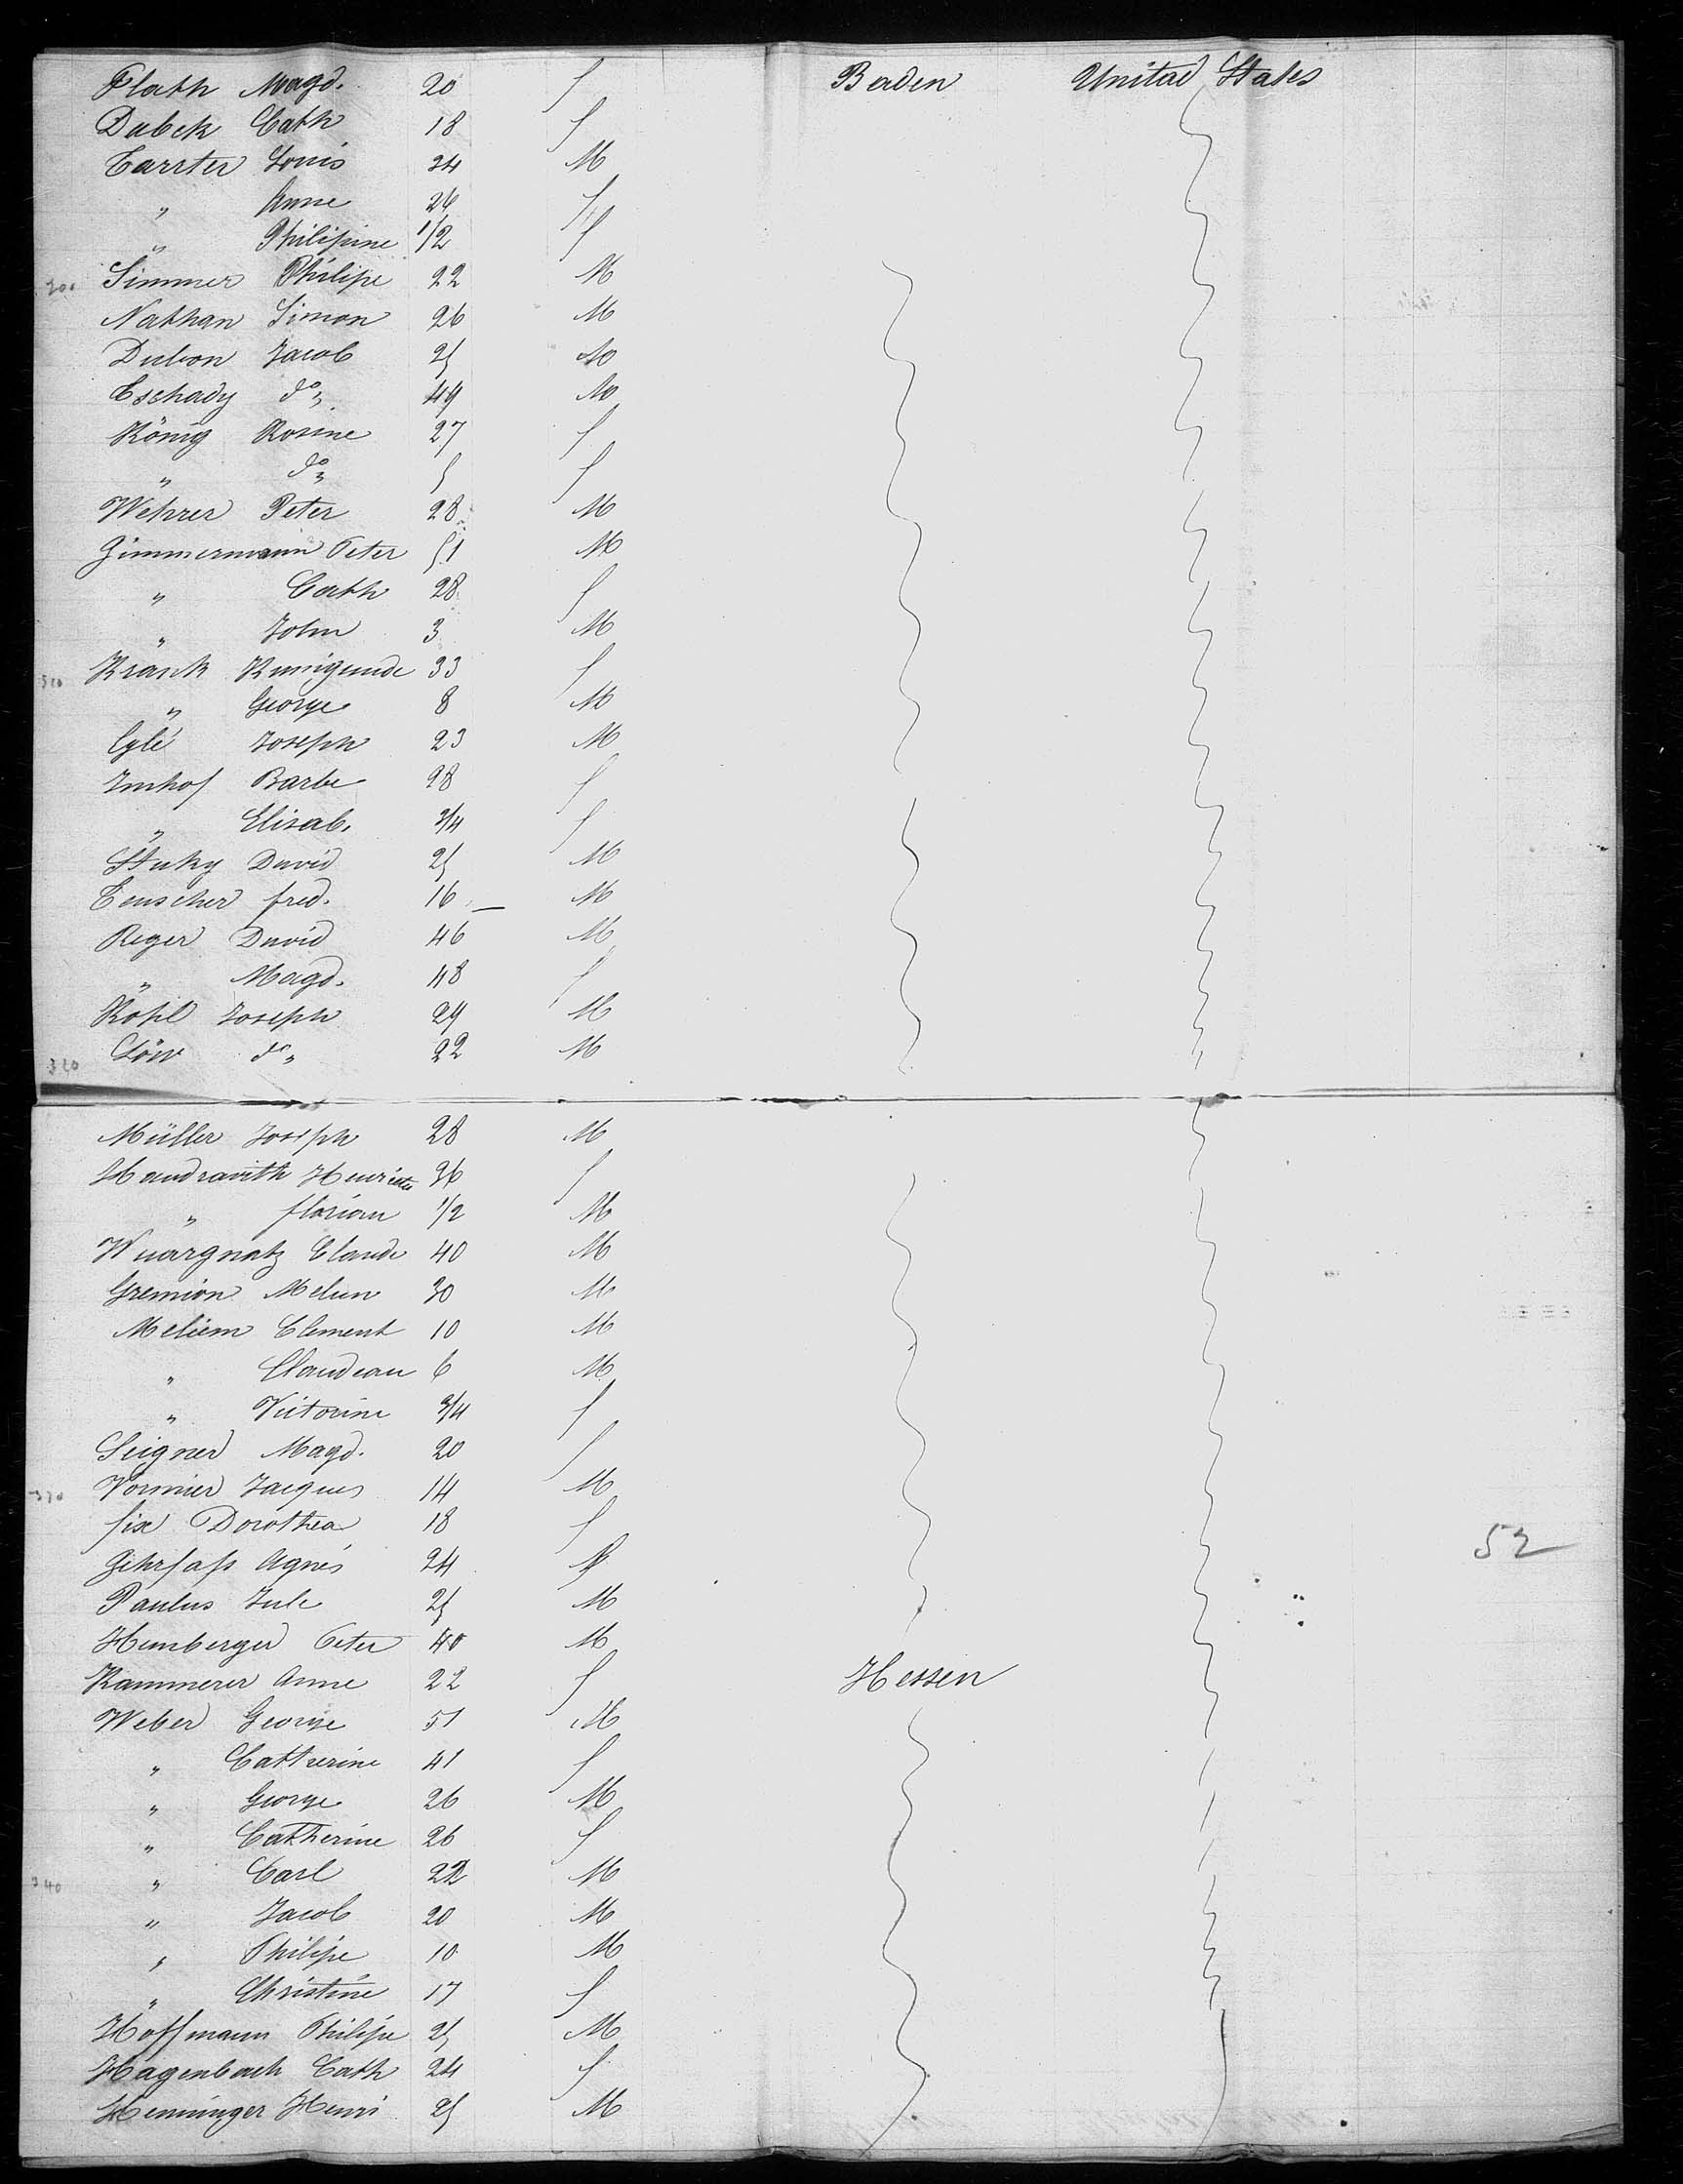 Flath Magd. 20 f Baden United States
Dubck Cath 18 f
Carrter Louis 24 M
" Anne 26 f
" Philipine 1/2 f
300 Simmer Philipe 22 M
Nathan Simon 26 M
Dubon Jacob 25 M
Eschady do 49 M
König Rosine 27 f
" do 5 f
Wehrer Peter 28 M
Zimmermann Peter 51 M
" Cath 28 f
" John 3 M
310 Krank Kunigunde 33 f
" George 8 M
Eglé Joseph 23 M
Imhof Barbe 28 f
" Elisab. 3/4 f
Stuky David 25 M
Teuscher fred. 16 — M
Reger David 46 M
" Magd. 48 f
Kohl Joseph 29 M
320 Löw do " 22 M
Müller Joseph 28 M
Henriette 36 f
" florian 1/2 M
Wuargnatz Claude 40 M
Gremion Melun 30 M
Meliem Clement 10 M
" Claudeau 6 M
" Victorine 3/4 f
Seigner Magd. 20 f
330 Vormier Jacques 14 M
fix Dorothea 18 f
Gehrfass Agnés 24 f
52
Paulus Jule 25 M
Hemberger Peter 40 M
Kammerer Anne 22 f Hessen
Weber George 51 M
" Catherine 41 f
" George 26 M
" Catherine 26 f
340 " Carl 22 M
" Jacob 20 M
" Philipe 10 M
" Christine 17 f
Hoffmann Philipe 25 M
Hagenbach Cath 24 f
Henninger Henri 25 M